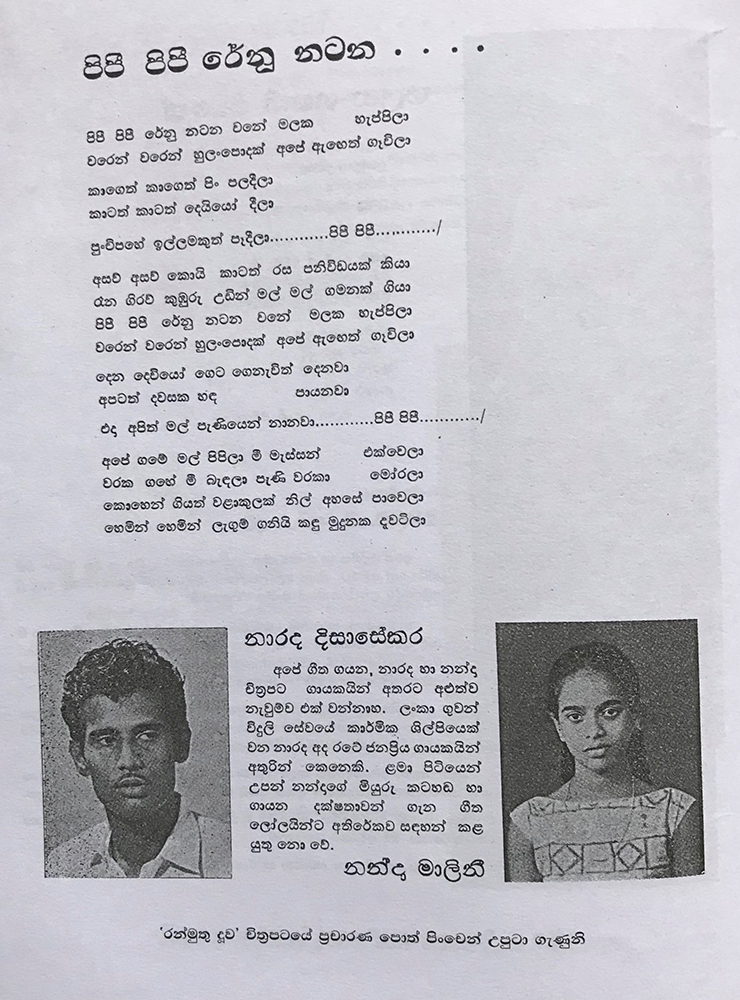 පිපී පිපී රේනු නටන . . . .
පිපී පිපී රේනු නටන වනේ මලක හැප්පිලා
වරෙන් වරෙන් හුලංපොදක් අපේ ඇඟෙත් ගෑවිලා
කාගෙත් කාගෙත් පිං පලදීලා
කාටත් කාටත් දෙයියෝ දීලා
පුංචිපහේ ඉල්ලමකුත් පෑදිලා............පිපී පිපී............/
අසව් අසව් කොයි කාටත් රස පනිවිඩයක් කියා
රෑන ගිරව් කුඹුරු උඩින් මල් මල් ගමනක් ගියා
පිපී පිපී රේනු නටන වනේ මලක හැප්පිලා
වරෙන් වරෙන් හුලංපොදක් අපේ ඇඟෙත් ගෑවිලා
දෙන දෙවියෝ ගෙට ගෙනැවිත් දෙනවා
අපටත් දවසක හඳ පායනවා
එදා අපිත් මල් පැණියෙන් නානවා............පිපී පිපී............/
අපේ ගමේ මල් පිපිලා මී මැස්සන් එක්වෙලා
වරක ගහේ මී බැඳලා පැණි වරකා මෝරලා
කොහෙන් ගියත් වළාකුලක් නිල් අහසේ පාවෙලා
හෙමින් හෙමින් ලැගුම් ගනියි කඳු මුදුනක දැවටිලා
නාරද දිසාසේකර
අපේ ගීත ගයන, නාරද හා නන්දා
චිත්‍රපට ගායකයින් අතරට අළුත්ව
නැවුම්ව එක් වන්නාහ. ලංකා ගුවන්
විදුලි සේවයේ කාර්මික ශිල්පියෙක්
වන නාරද අද රටේ ජනප්‍රිය ගායකයින්
අතුරින් කෙනෙකි. ළමා පිටියෙන්
උපන් නන්දාගේ මියුරු කටහඬ හා
ගායන දක්ෂතාවන් ගැන ගීත
ලෝලයින්ට අතිරේකව සඳහන් කළ
යුතු නො වේ.
නන්දා මාලිනී
‘රන්මුතු දූව’ චිත්‍රපටයේ ප්‍රචාරණ පොත් පිංචෙන් උපුටා ගැණුනි